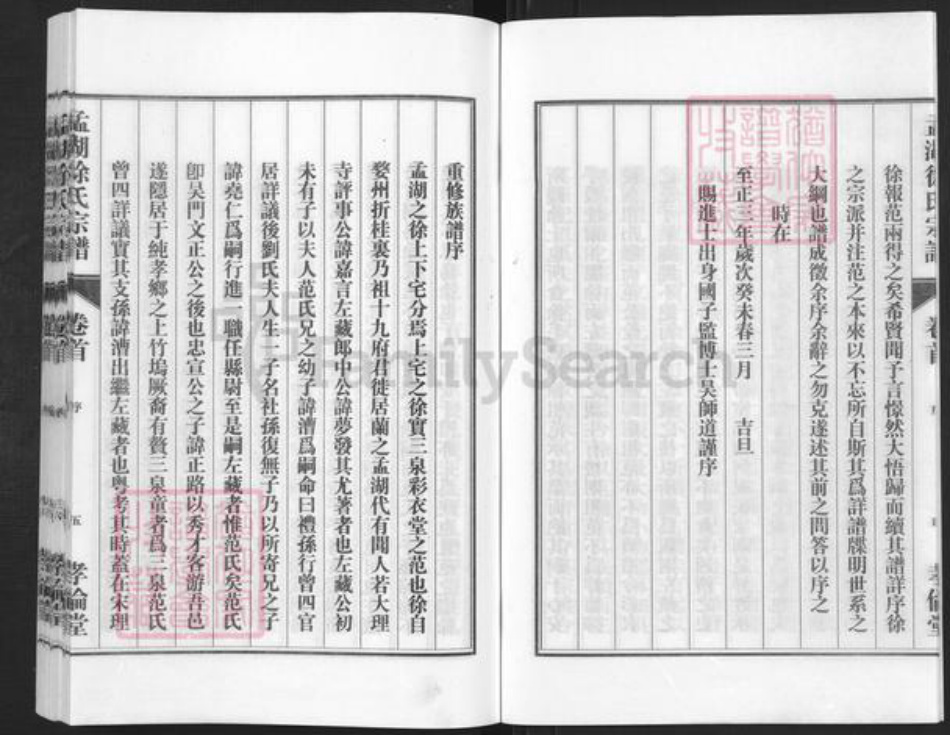 徐報范兩得之矣希賢聞予言慄然大悟歸而續其譜詳序徐
之宗派并注范之本來以不忘所自斯其爲詳譜牒明世系之
大綱也譜成徵余序余辭之勿克遂述其前之問答以序之
時在
至正三年歲次癸未春三月 吉旦
賜進士出身國子監博士吴師道謹序
孟湖徐氏宗譜 卷首 序 孝倫堂
重修族譜序
孟湖之徐上下宅分焉上宅之徐實三泉彩衣堂之范也徐自
婺州折桂裏乃祖十九府君徙居蘭之孟湖代有聞人若大理
寺評事公諱嘉言左藏郎中公諱夢發其尤著者也左藏公初
未有子以夫人范氏兄之幼子諱漕爲嗣命曰禮孫行曾四官
居詳議後劉氏夫人生一子名社孫復無子乃以所寄兄之子
諱堯仁爲嗣行進一職任縣尉至是嗣左藏者惟范氏矣范氏
卽吴門文正公之後也忠宣公之子諱正路以秀才客游吾邑
遂隱居于純孝鄉之上竹塢厥裔有贅三泉童者爲三泉范氏
曾四詳議實其支孫諱漕出繼左藏者也粤考其時蓋在宋理
孟湖徐氏宗譜 卷首 序 五 孝倫堂
FamilySearch